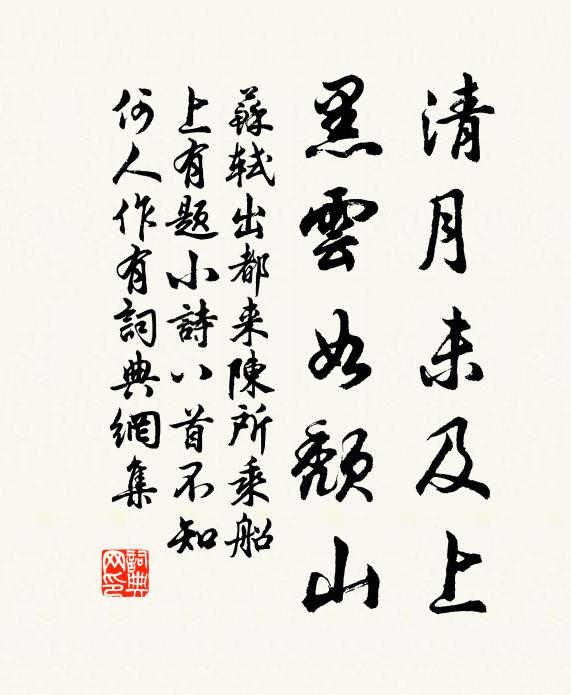 清月未及上
黑雲如頹山
蘇軾出都来陳所乘船
上有題小詩八首不知
何人作有詞典網集
詞典
网印